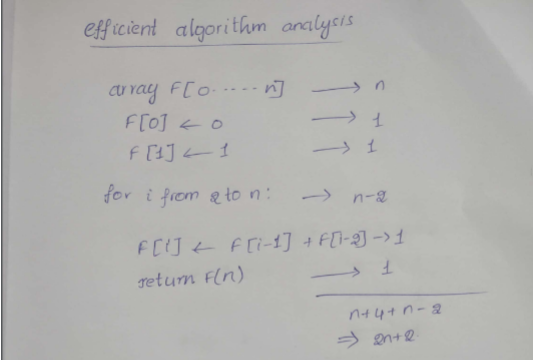 efficient algorithm analysis
array F[0·····n] → n
F[0] ← 0 → 1
F[1] ← 1 → 1
for i from 2 to n: → n-2
F[i] ← F[i-1] + F[i-2] → 1
return F(n) → 1
n+4+n-2
⇒ 2n+2